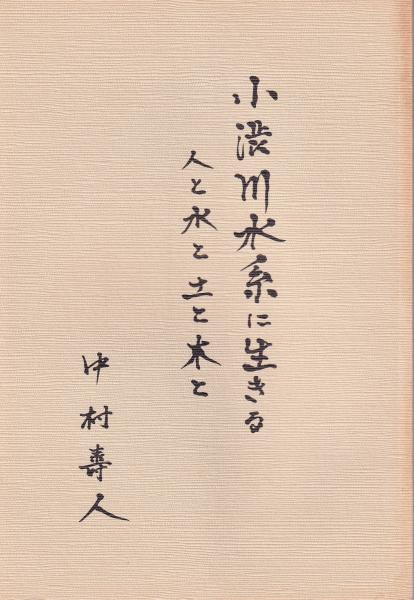 小渋川水系に生きる
人と水と土と木と
中村壽人